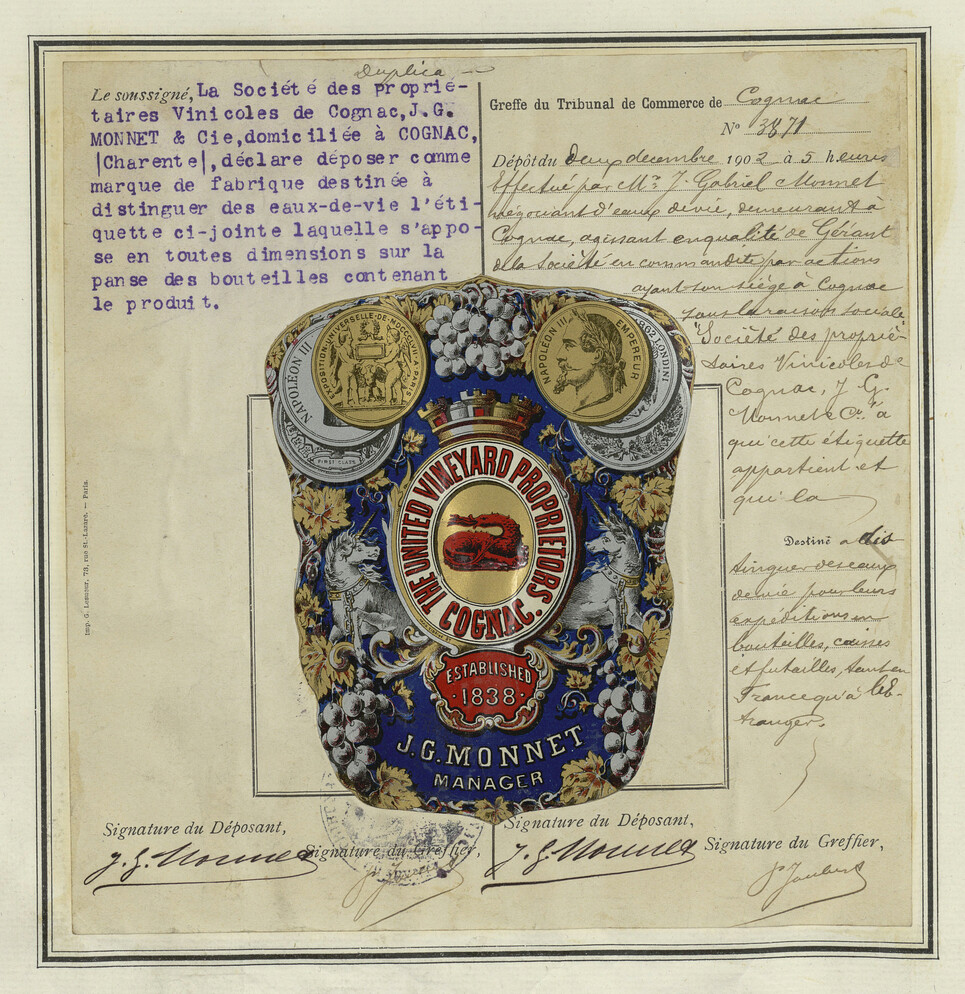 Duplica
Le soussigné, La Société des proprié-
taires Vinicoles de Cognac, J.G.
MONNET & Cie, domiciliée à COGNAC,
|Charente|, déclare déposer comme
marque de fabrique destinée à
distinguer des eaux-de-vie l'éti-
quette ci-jointe laquelle s'appo-
se en toutes dimensions sur la
panse des bouteilles contenant
le produit.
Greffe du Tribunal de Commerce de Cognac
N° 3871
Dépôt du deux decembre 1902 à 5 heures
Effectué par Mr J. Gabriel Monnet
négociant d'eaux de vie, demeurant à
Cognac, agissant en qualité de Gérant
de la Société en commandite par actions
ayant son siège à Cognac
sous la raison sociale
"Société des proprié-
taires Vinicoles de
Cognac, J. G.
Monnet & Cie" a
qui cette étiquette
appartient et
qui la
Destine a dis
tinguer des eaux
de vie pour leurs
expéditions en
bouteilles, caisses
et futailles, tant en
France qu'à l'é-
tranger.
EXPOSITION UNIVERSELLE DE MDCCCLV A PARIS
NAPOLÉON III
FIRST CLASS
NAPOLÉON III EMPEREUR
1862 LONDINI
THE UNITED VINEYARD PROPRIETORS
COGNAC.
ESTABLISHED
1838
J.G. MONNET
MANAGER
Imp. G. Lesueur, 73, rue St-Lazare. — Paris.
Signature du Déposant,
J. G. Monnet
Signature du Greffier,
Signature du Déposant,
J. G. Monnet
Signature du Greffier,
Joubert